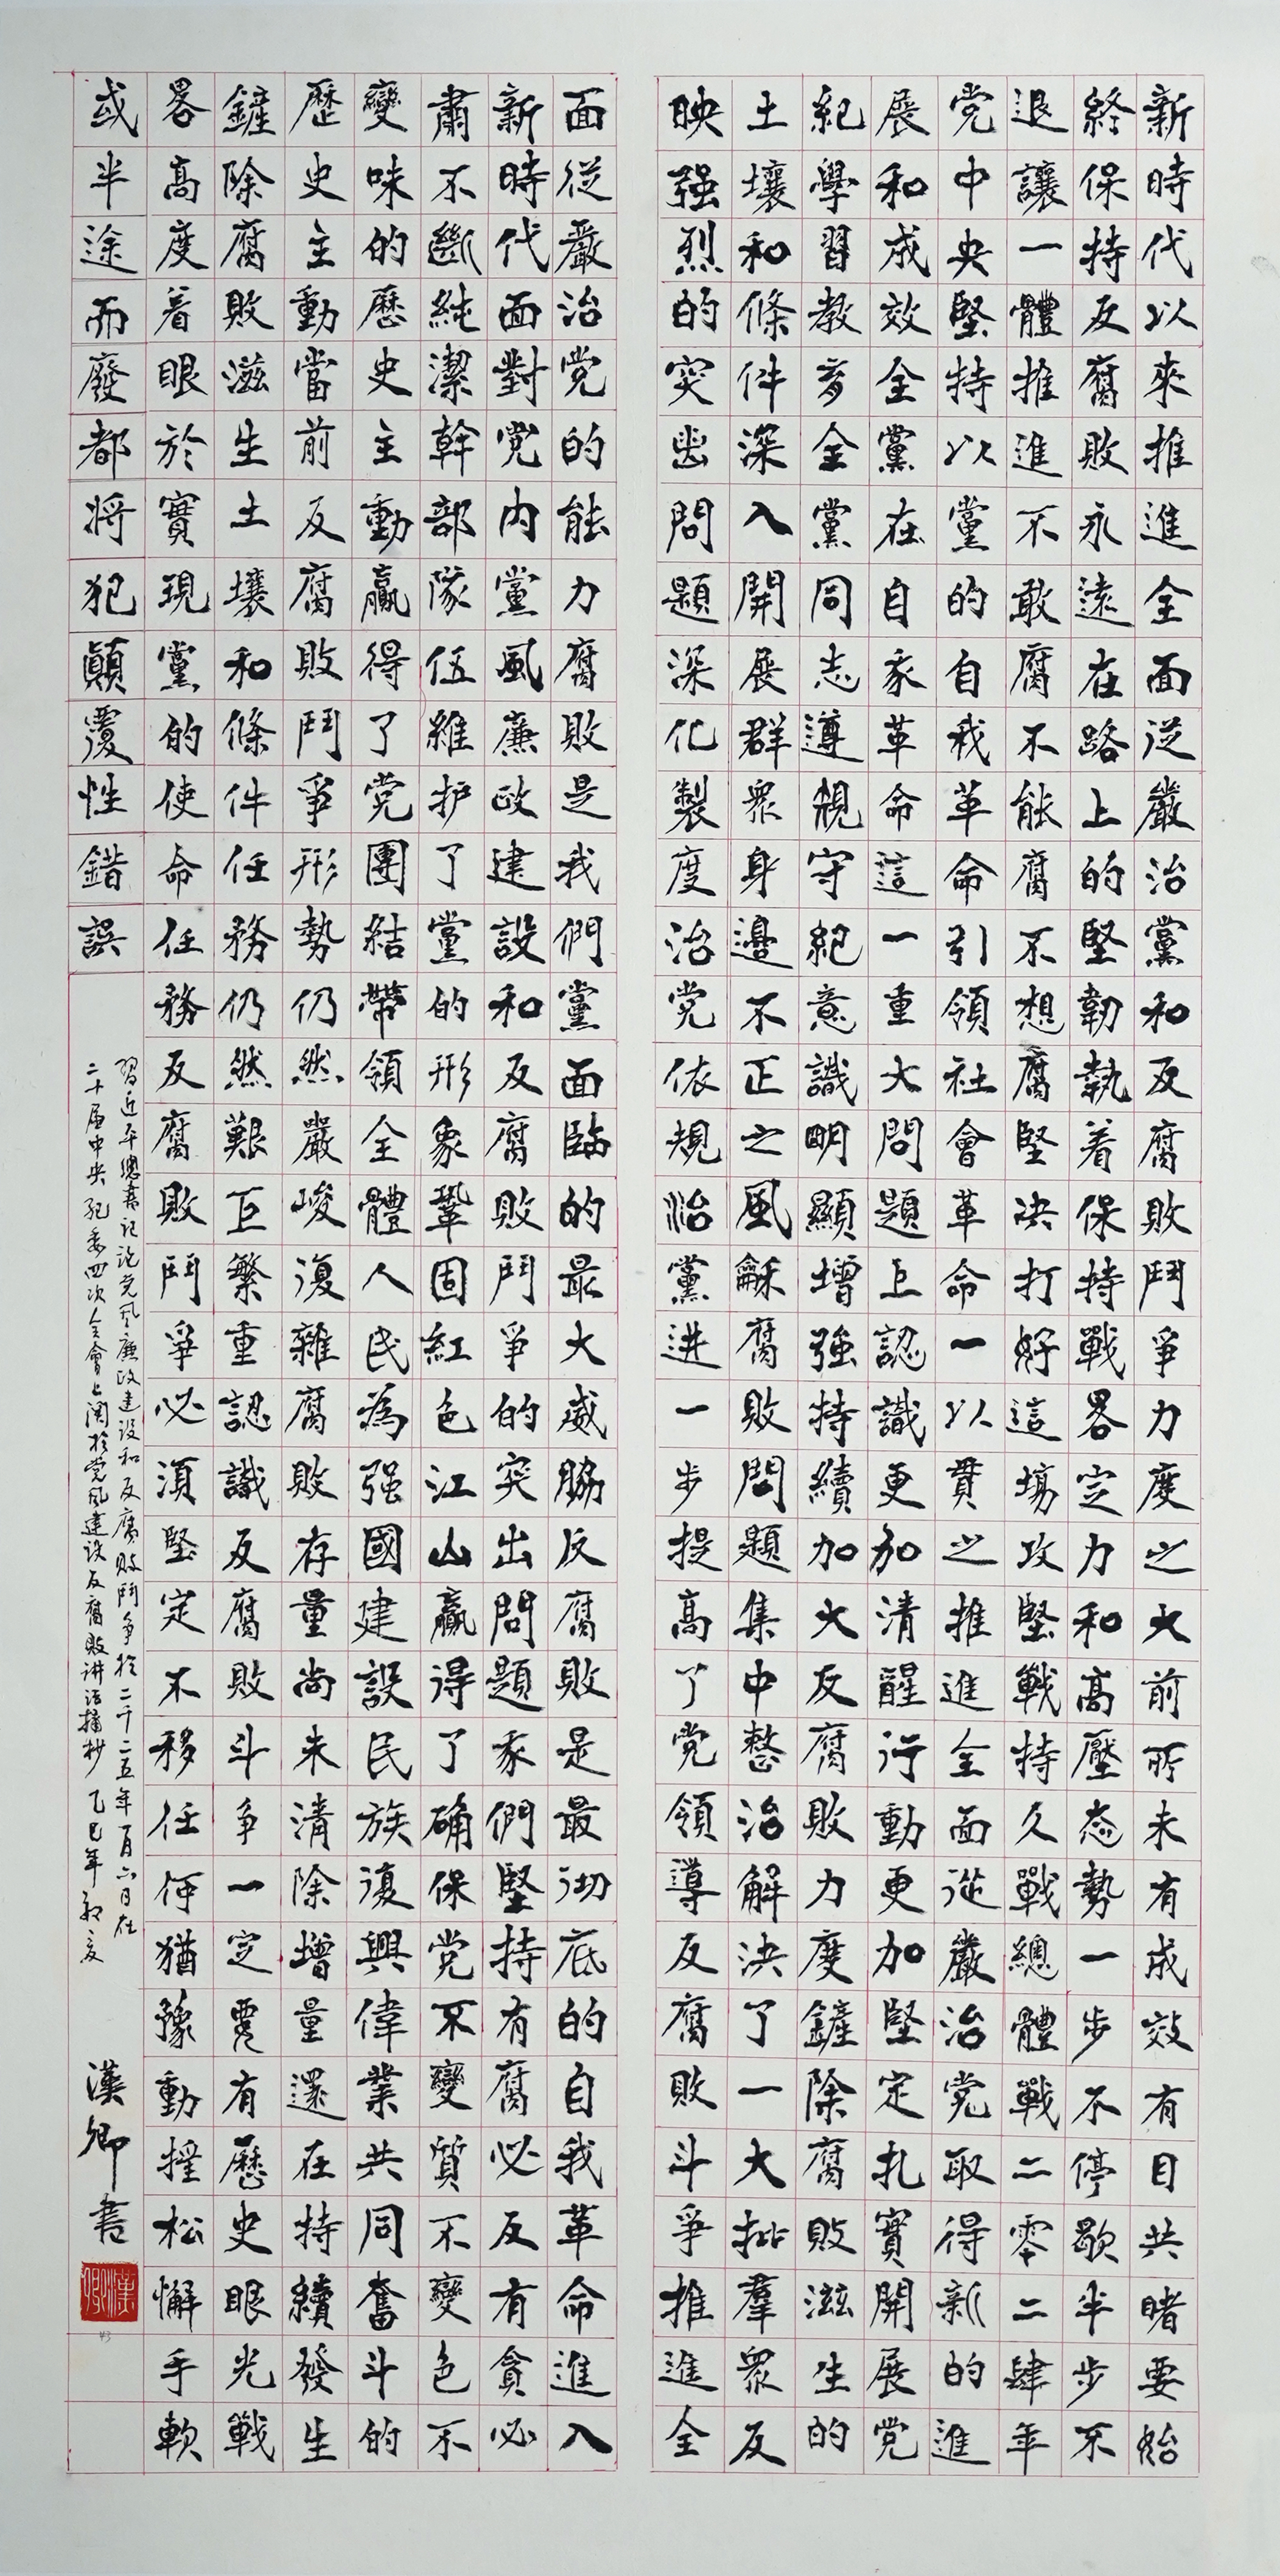 新時代以來推進全面從嚴治黨和反腐敗鬥爭力度之大前所未有成效有目共睹要始
終保持反腐敗永遠在路上的堅韌執着保持戰畧定力和高壓态勢一步不停歇半步不
退讓一體推進不敢腐不能腐不想腐堅决打好這場攻堅戰持久戰總體戰二零二肆年
党中央堅持以黨的自我革命引領社會革命一以貫之推進全面從嚴治党取得新的進
展和成效全黨在自我革命這一重大問題上認識更加清醒行動更加堅定扎實開展党
紀學習教育全黨同志遵規守紀意識明顯增強持續加大反腐敗力度鏟除腐敗滋生的
土壤和條件深入開展群眾身邊不正之風龢腐敗問題集中整治解決了一大批羣眾反
映强烈的突出問題深化製度治党依規治黨进一步提高了党領導反腐敗斗爭推進全
面從嚴治党的能力腐敗是我們黨面臨的最大威脇反腐敗是最彻底的自我革命進入
新時代面對党内黨風廉政建設和反腐敗鬥爭的突出問題我們堅持有腐必反有貪必
肅不斷純潔幹部隊伍維护了黨的形象鞏固紅色江山贏得了确保党不變質不變色不
變味的歷史主動贏得了党團結帶領全體人民為强國建設民族復興偉業共同奮斗的
歷史主動當前反腐敗鬥爭形勢仍然嚴峻復雜腐敗存量尚未清除增量還在持續發生
鏟除腐敗滋生土壤和條件任務仍然艱巨繁重認識反腐敗斗争一定要有歷史眼光戰
畧高度着眼於實現黨的使命任務反腐敗鬥爭必須堅定不移任何猶豫動摇松懈手軟
或半途而廢都将犯顛覆性錯誤
習近平總書記論党风廉政建设和反腐敗鬥争於二千二五年一月六日在
二十届中央纪委四次全會上関於党风建设反腐敗讲话摘抄 乙巳年初夏
漢卿書
漢卿